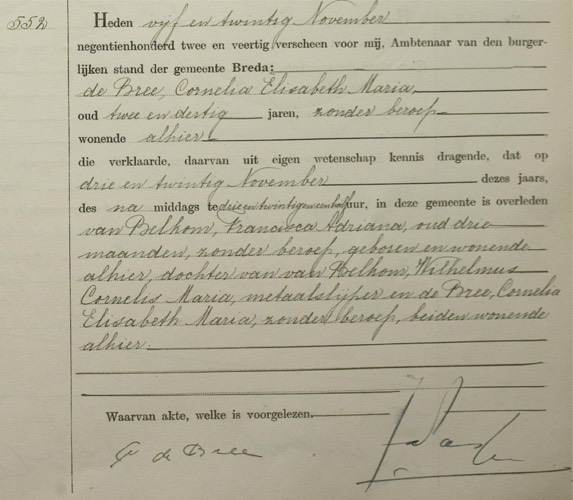 552
Heden vijf en twintig November
negentienhonderd twee en veertig verscheen voor mij, Ambtenaar van den burger-
lijken stand der gemeente Breda:
de Bree, Cornelia Elisabeth Maria,
oud twee en dertig jaren, zonder beroep
wonende alhier
die verklaarde, daarvan uit eigen wetenschap kennis dragende, dat op
drie en twintig November dezes jaars,
des na middags te drie en twintig en een half uur, in deze gemeente is overleden
van Belkom, Francisca Adriana, oud drie
maanden, zonder beroep, geboren en wonende
alhier, dochter van van Belkom, Wilhelmus
Cornelis Maria, metaalslijper en de Bree, Cornelia
Elisabeth Maria, zonder beroep, beiden wonende
alhier.
Waarvan akte, welke is voorgelezen.
de Bree